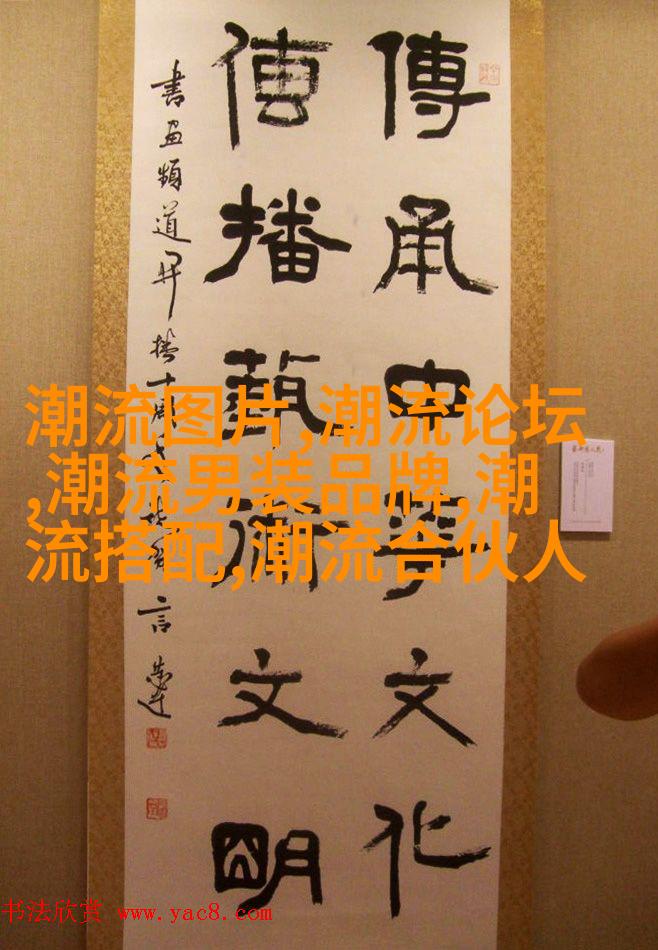 傳承中華文化
傳播藝術文明
書畫頻道開播十周年
言
潮流图片,潮流论坛
,潮流男装品牌,潮
流搭配,潮流合伙人
书法欣赏 www.yac8.com